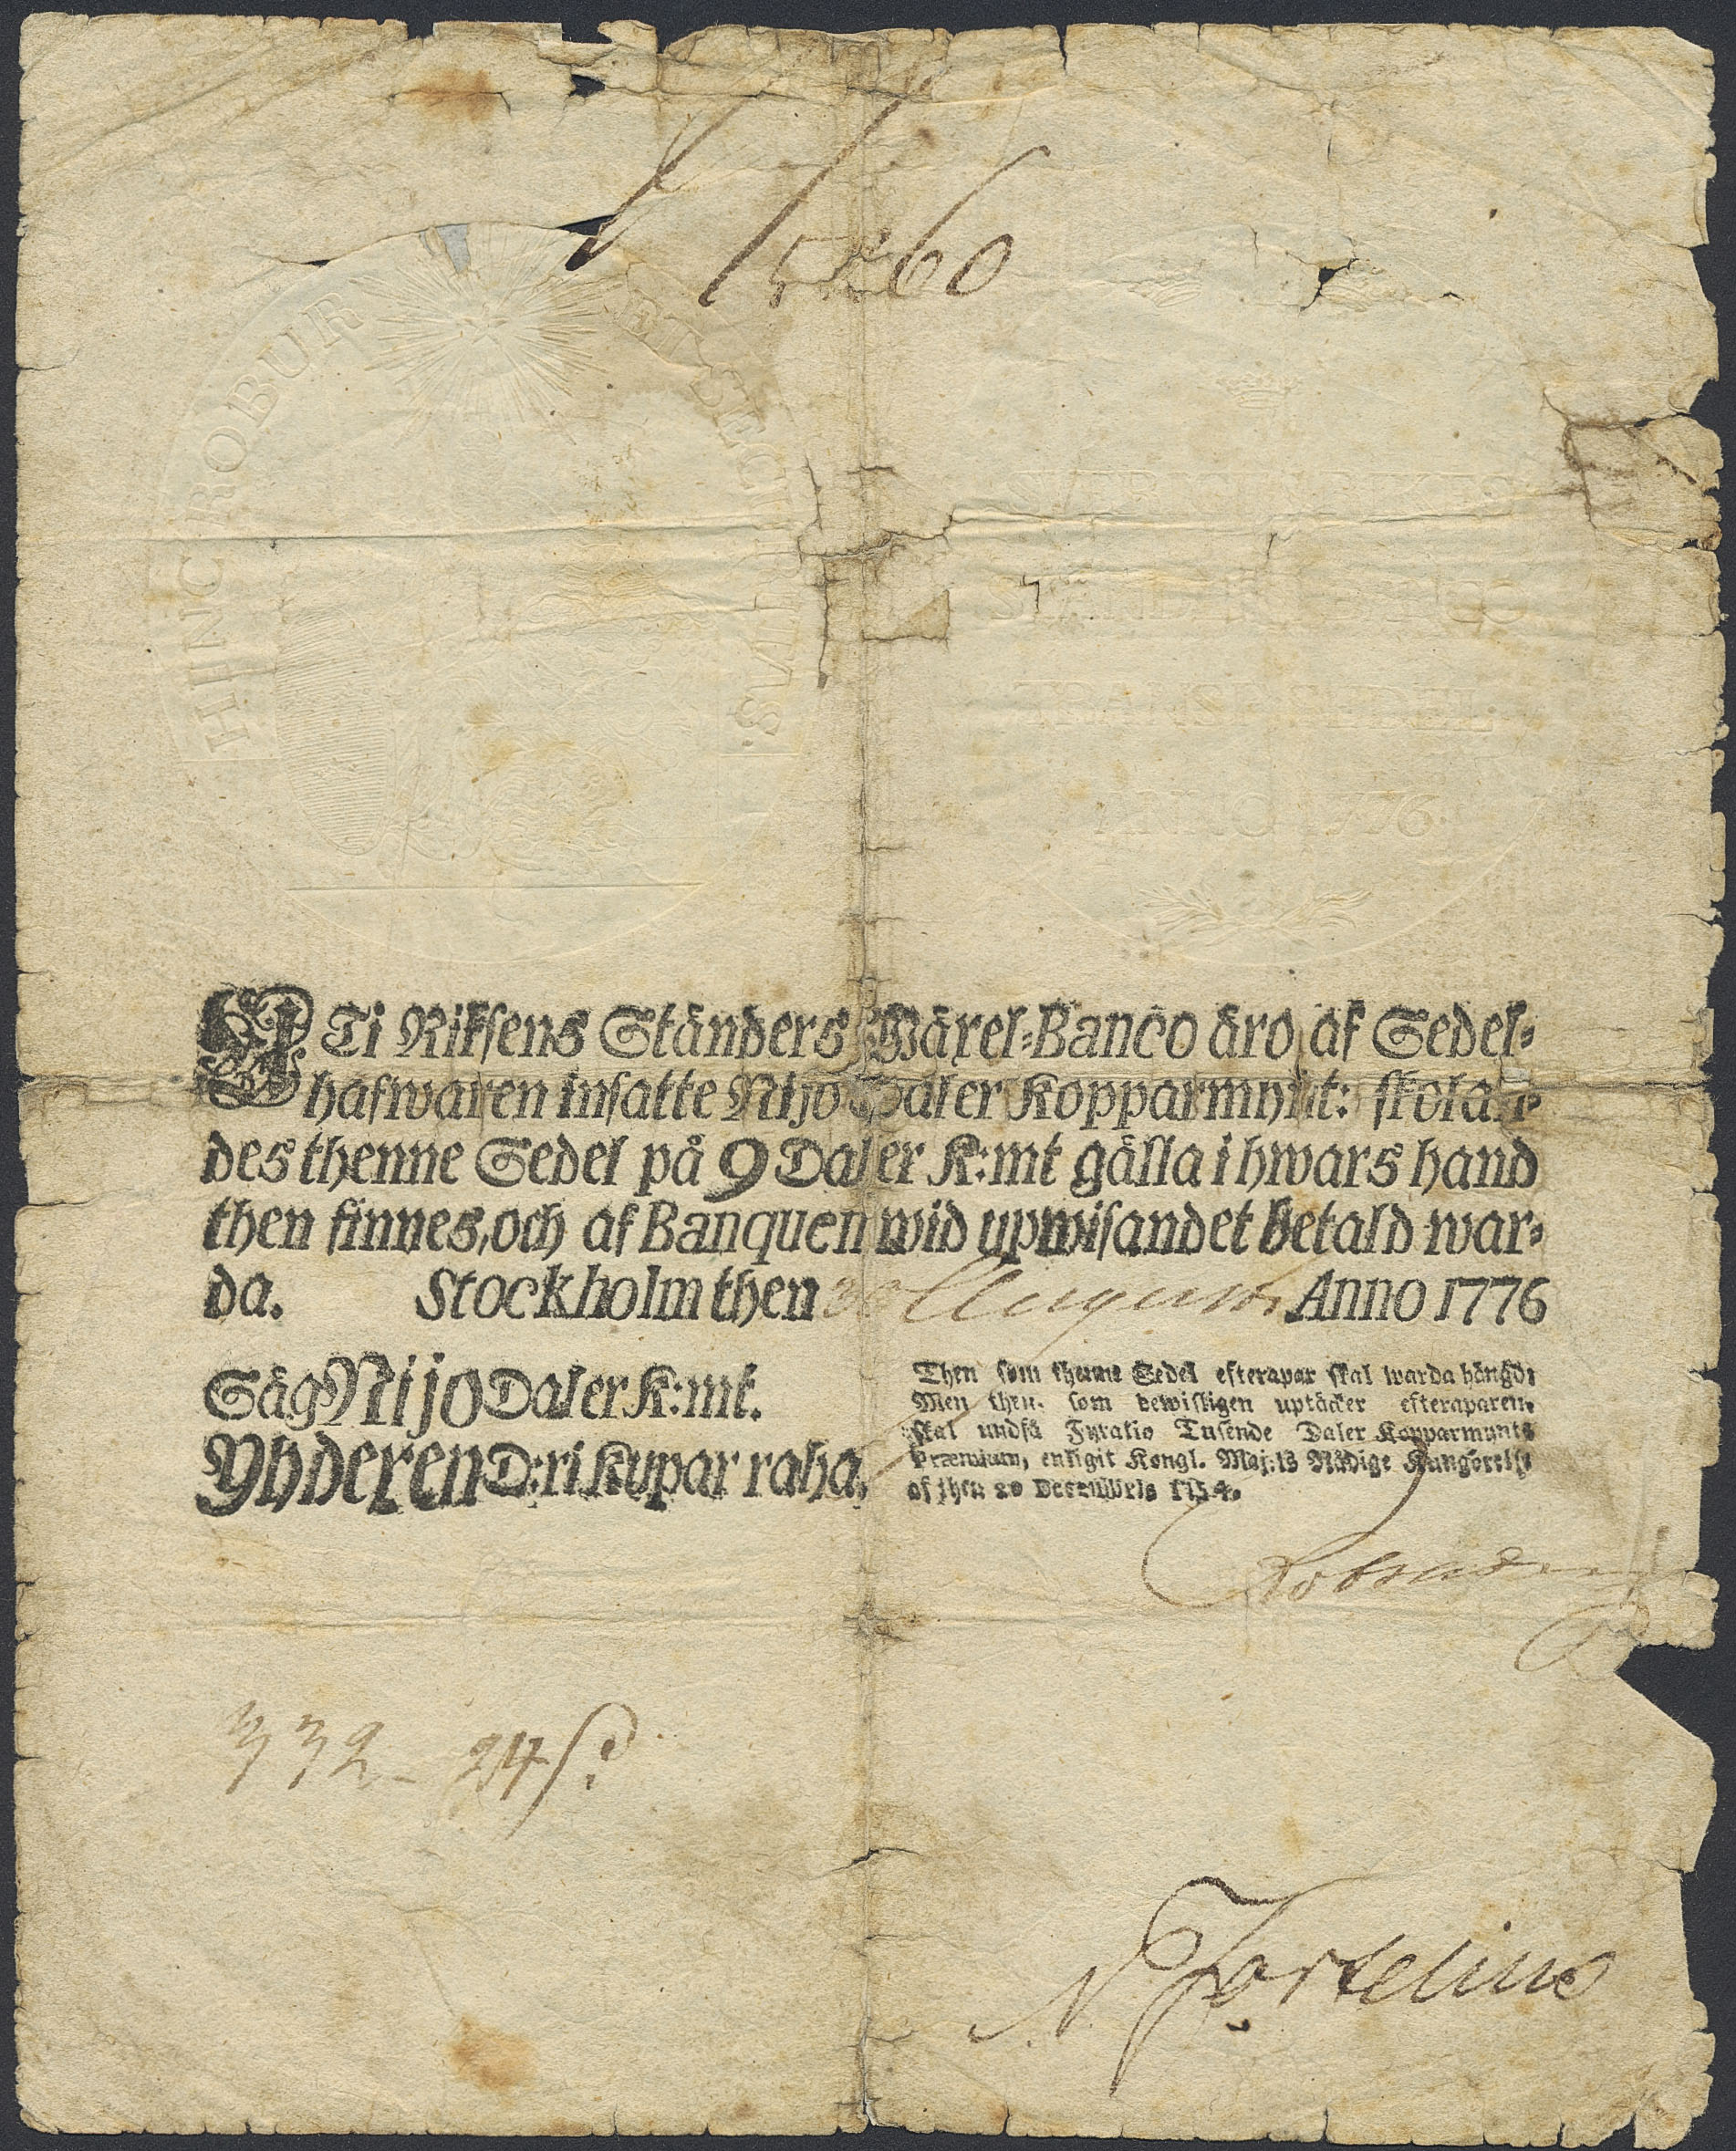 HINC ROBUR ET SECURITAS
SVERIGES RIKES
STÄNDERS BANCO
TRANSP. SEDEL
ANNO 1776.
Ti Riksens Ständers Wäxel-Banco äro af Sedel-
hafwaren insatte Nijo Daler Kopparmynt: skolan-
des thenne Sedel på 9 Daler K:mt gälla i hwars hand
then finnes, och af Banquen wid upwisandet betald war-
da. Stockholm then 30 Augusti Anno 1776
Säg Nijo Daler K:mt.
Yhdexen D:ri Kupar raha,
Then som thenne Sedel efterapar skal warda hängd;
Men then, som bewisligen uptäcker efteraparen,
skal undfå Fyratio Tusende Daler Kopparmynts
Præmium, enligit Kongl. Maj:ts Nådige Kungörelse
af then 20 Decembris 1754.
332 -